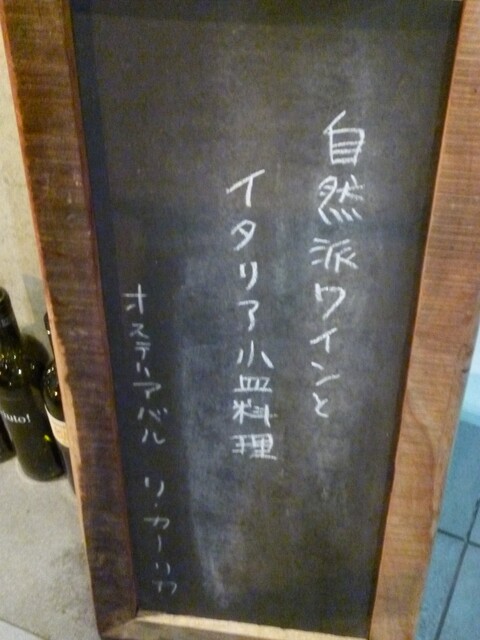 自然派ワインと
イタリア小皿料理
オステリアバル リ・カーリカ